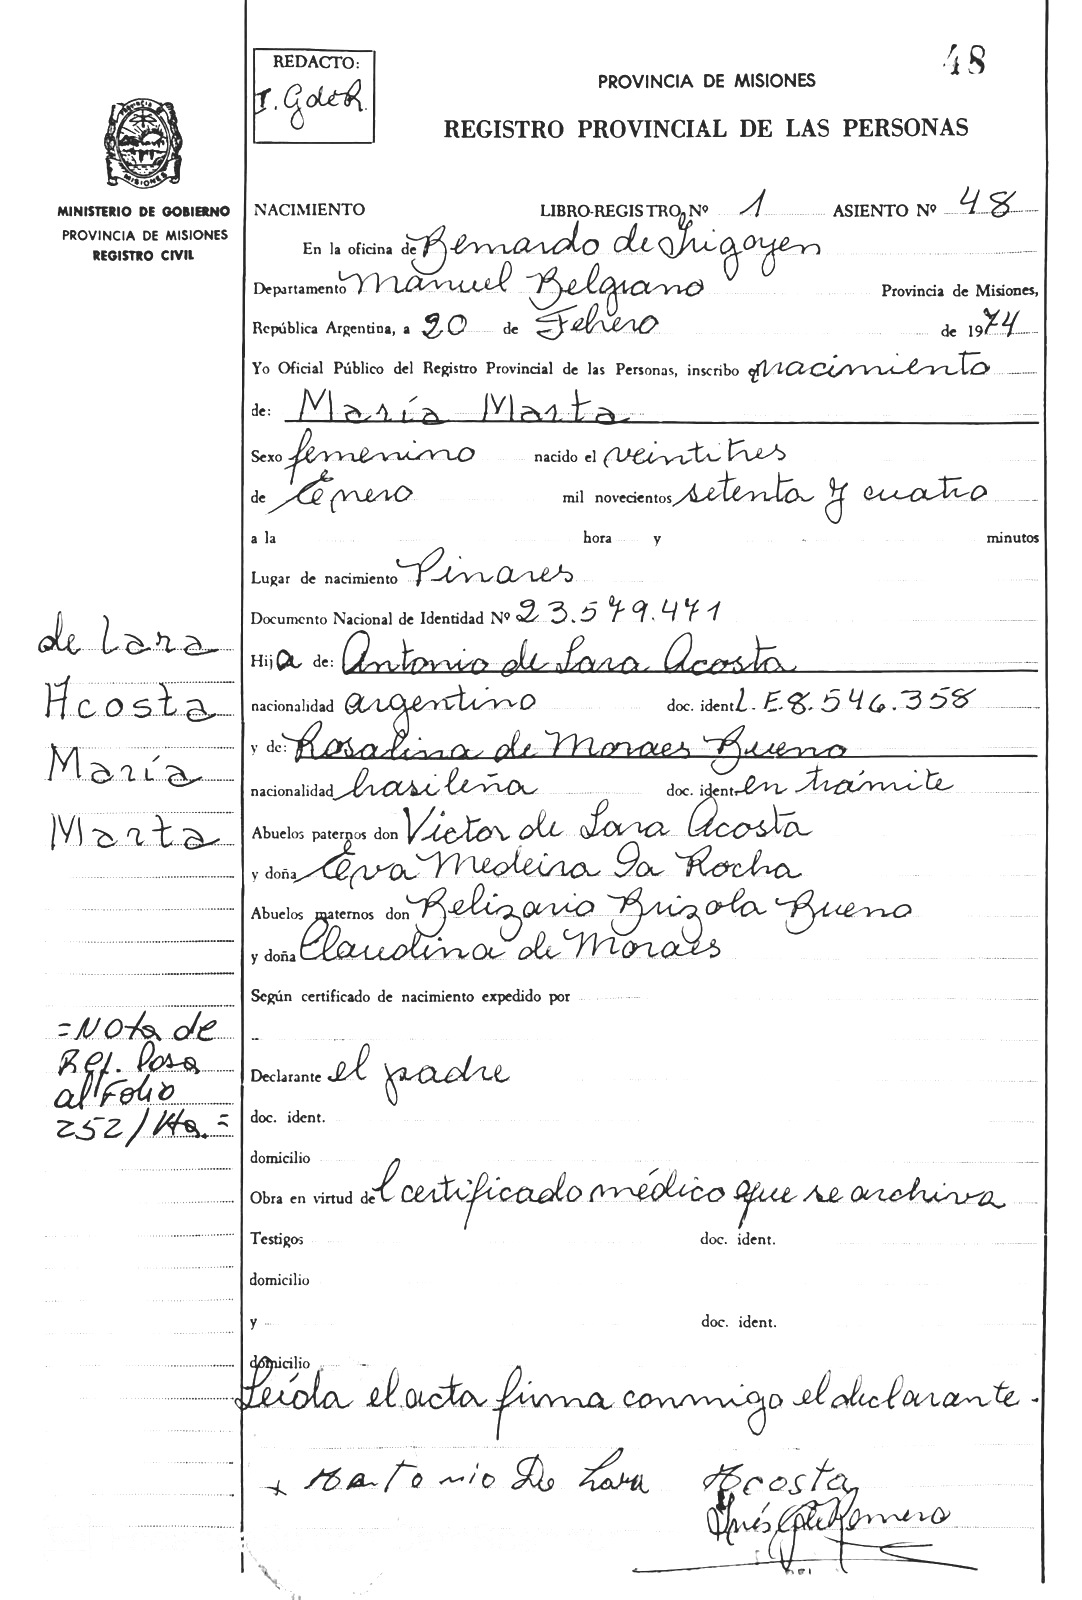 48
REDACTO:
I. G de R.
PROVINCIA DE MISIONES
REGISTRO PROVINCIAL DE LAS PERSONAS
PROVINCIA DE
MISIONES
MINISTERIO DE GOBIERNO
PROVINCIA DE MISIONES
REGISTRO CIVIL
NACIMIENTO LIBRO-REGISTRO Nº 1 ASIENTO Nº 48
En la oficina de Bernardo de Irigoyen
Departamento Manuel Belgrano Provincia de Misiones,
República Argentina, a 20 de Febrero de 1974
Yo Oficial Público del Registro Provincial de las Personas, inscribo el nacimiento
de: María Marta
Sexo femenino nacido el veintitres
de Enero mil novecientos setenta y cuatro
a la hora y minutos
Lugar de nacimiento Pinares
Documento Nacional de Identidad Nº 23.579.471
Hija de: Antonio de Lara Acosta
nacionalidad argentino doc. ident. L.E 8.546.358
y de: Rosalina de Moraes Bueno
nacionalidad brasileña doc. ident. en trámite
Abuelos paternos don Victor de Lara Acosta
y doña Eva Medeira Da Rocha
Abuelos maternos don Belizario Brizola Bueno
y doña Claudina de Moraes
Según certificado de nacimiento expedido por
Declarante el padre
doc. ident.
domicilio
Obra en virtud del certificado médico que se archiva
Testigos doc. ident.
domicilio
y doc. ident.
domicilio
Leída el acta firma conmigo el declarante.
Antonio De Lara Acosta
Inés G de Romero
de Lara
Acosta
María
Marta
=Nota de
Ref. Pasa
al Folio
252/Vta.=